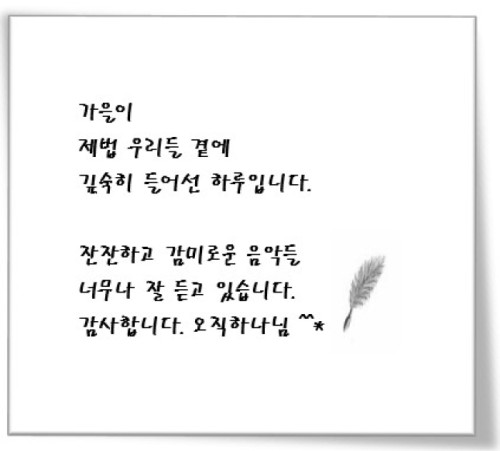 가을이
제법 우리들 곁에
깊숙히 들어선 하루입니다.
잔잔하고 감미로운 음악들
너무나 잘 듣고 있습니다.
감사합니다. 오직하나님 ^^*